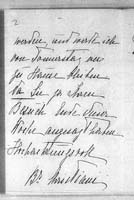 2
werden, und werde ich
von Donnerstag an
zu Hause bleiben
um Sie zu Ihrem
Besuch Ende dieser
Woche
Hochachtungsvoll
Dr.